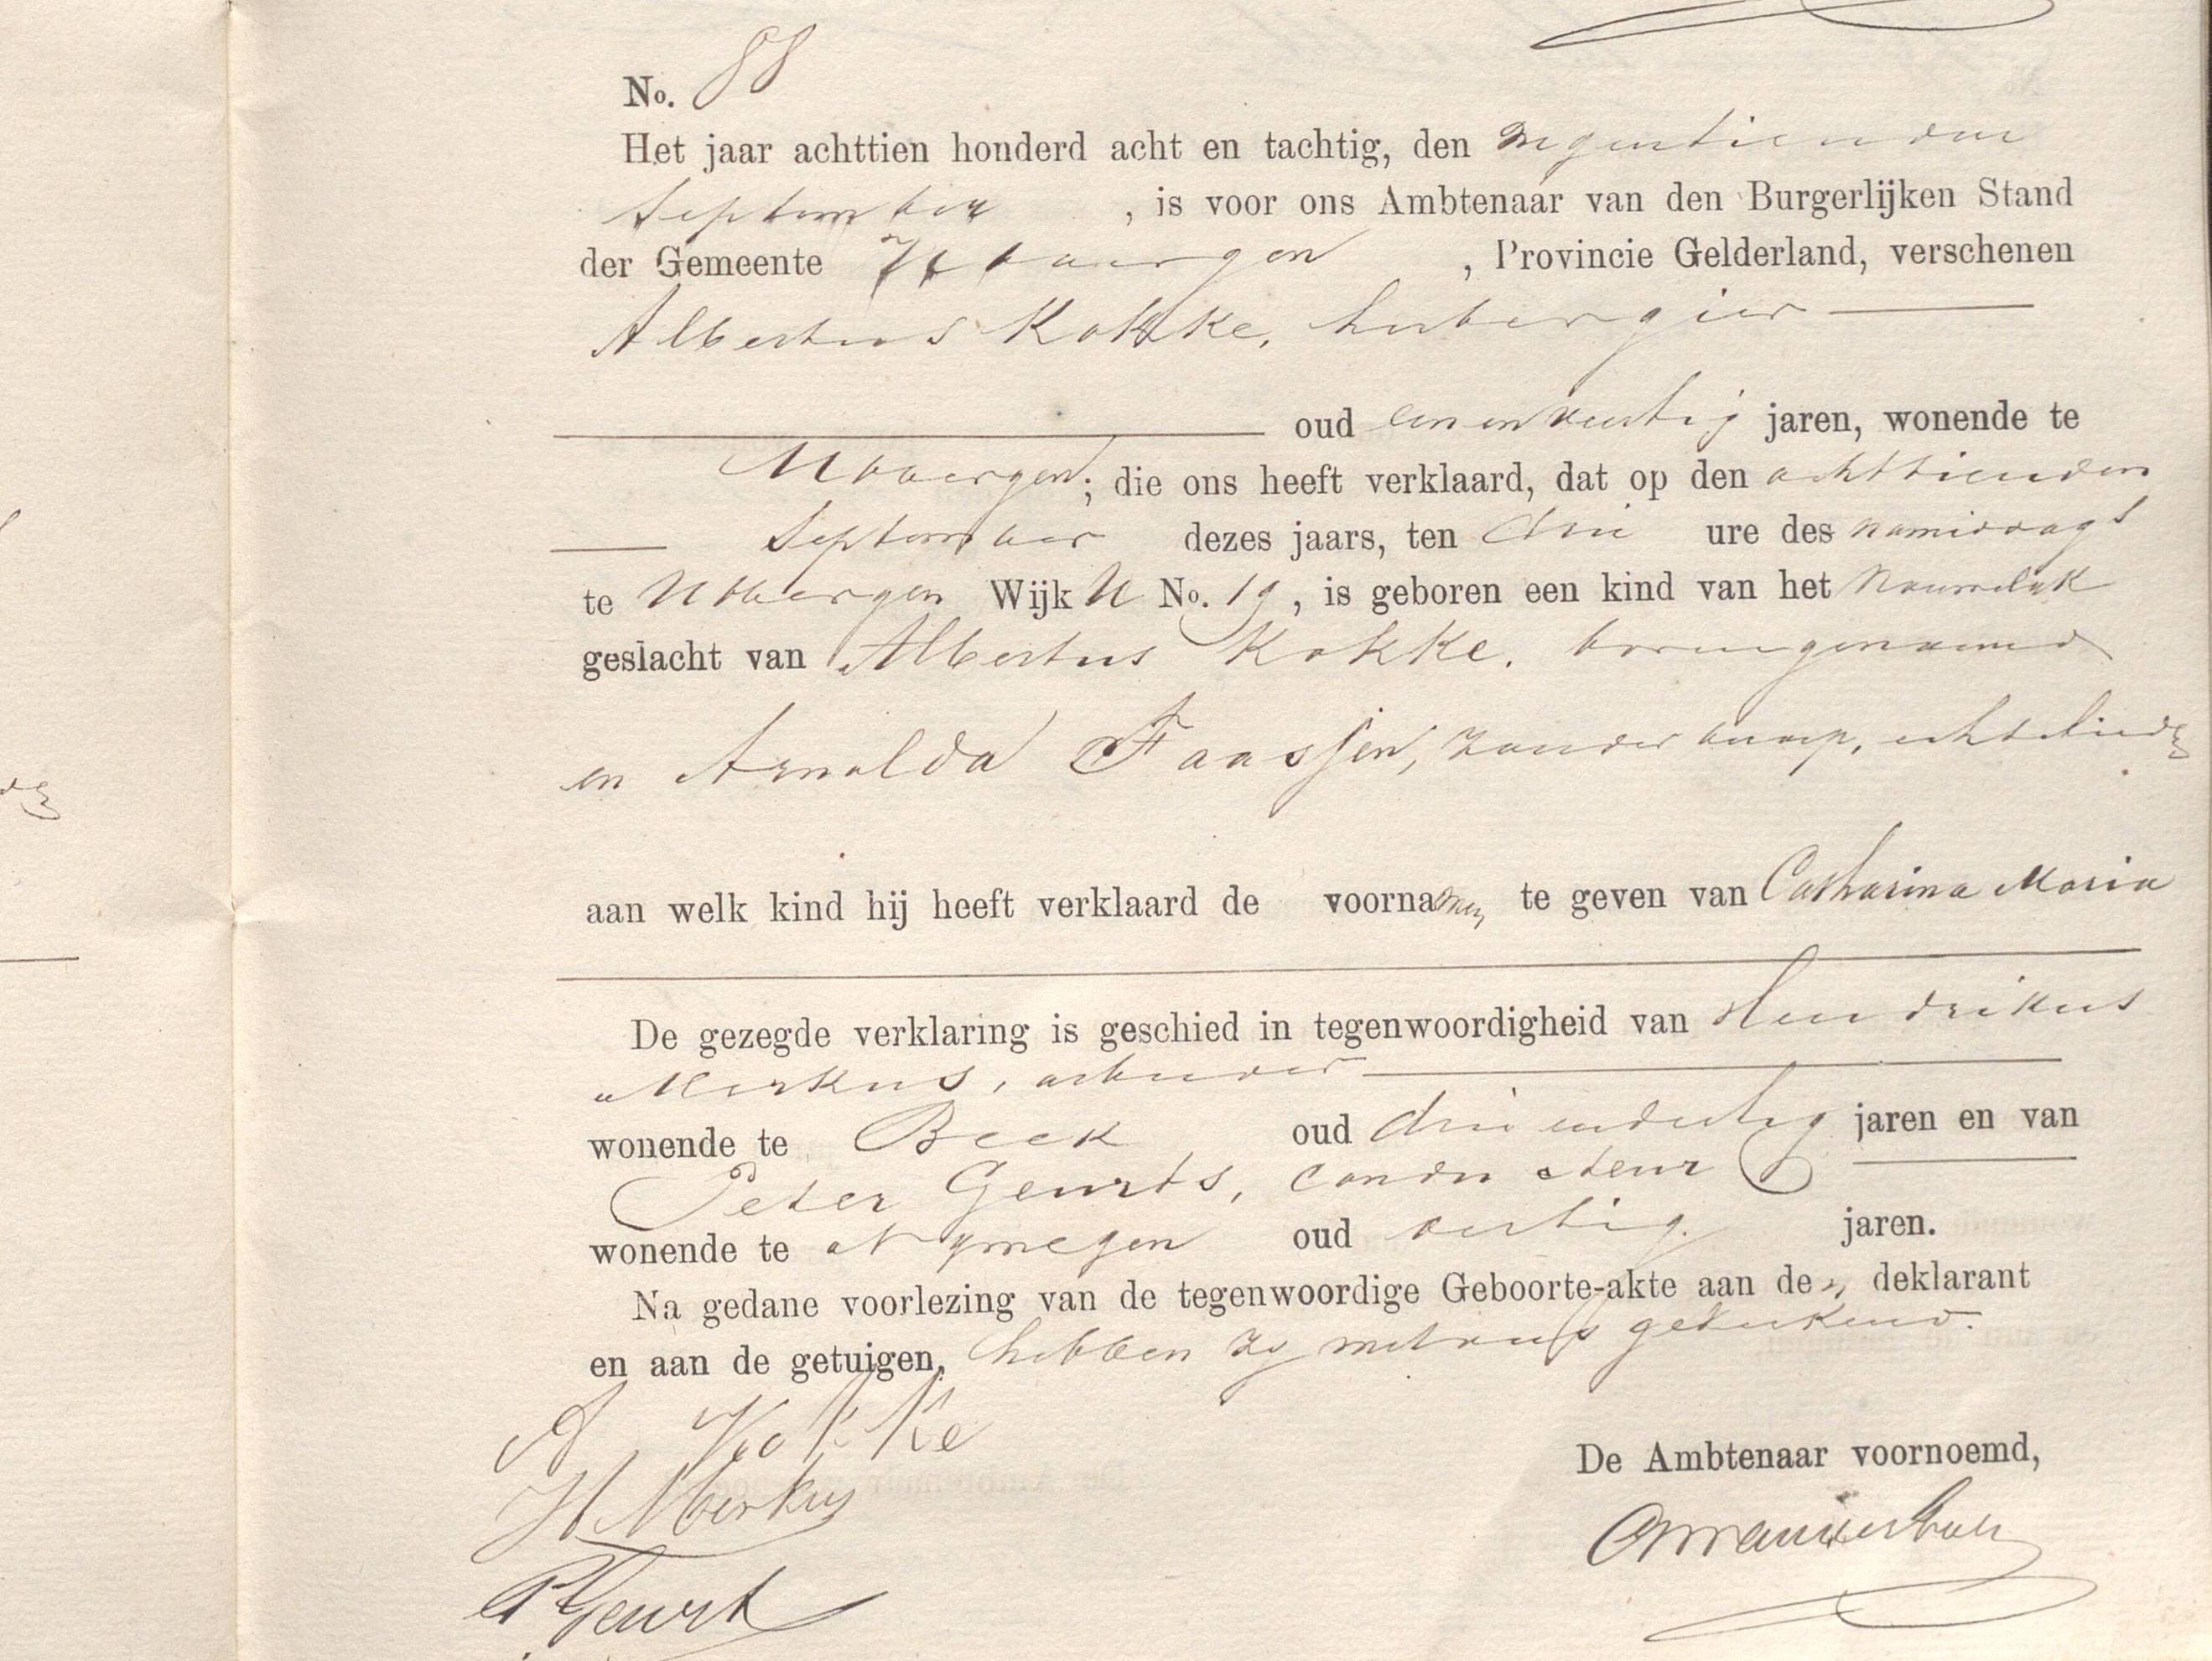 No. 88
Het jaar achttien honderd acht en tachtig, den negentienden
September , is voor ons Ambtenaar van den Burgerlijken Stand
der Gemeente Ubbergen , Provincie Gelderland, verschenen
Albertus Kokke, herbergier
oud een en veertig jaren, wonende te
Ubbergen; die ons heeft verklaard, dat op den achttienden
September dezes jaars, ten drie ure des namiddags
te Ubbergen Wijk U No. 19, is geboren een kind van het vrouwelijk
geslacht van Albertus Kokke, bovengenoemd
en Arnolda Faassen, zonder beroep, echtelieden
aan welk kind hij heeft verklaard de voornamen te geven van Catharina Maria
De gezegde verklaring is geschied in tegenwoordigheid van Hendrikus
Merkus, arbeider
wonende te Beek oud drie en dertig jaren en van
Peter Geurts, conducteur
wonende te Nymegen oud veertig. jaren.
Na gedane voorlezing van de tegenwoordige Geboorte-akte aan den deklarant
en aan de getuigen, hebben zy met ons geteekend.
A Kokke
De Ambtenaar voornoemd,
H Merkus
P Geurts